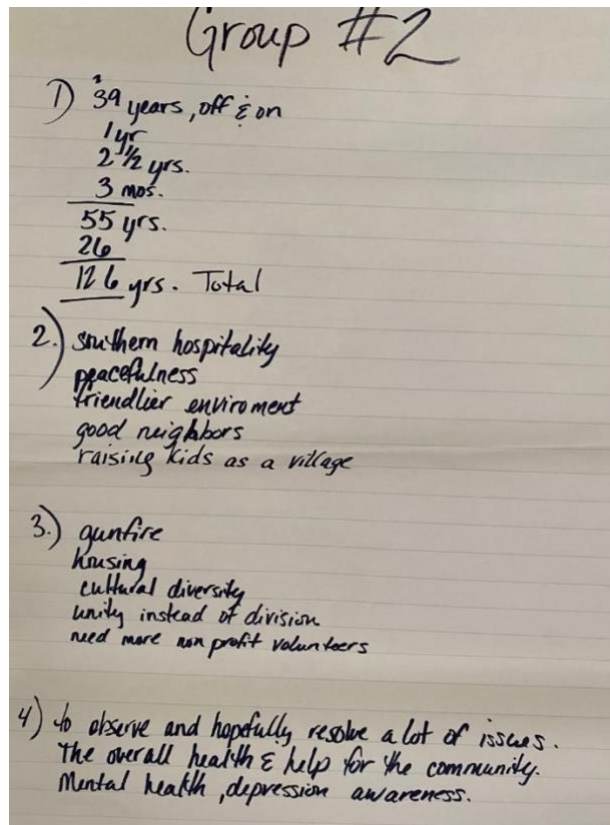 Group #2
1) 39 years, off & on
1 yr
2 1/2 yrs.
3 mos.
55 yrs.
26
126 yrs. Total
2.) southern hospitality
peacefulness
friendlier enviroment
good neighbors
raising kids as a village
3.) gunfire
housing
cultural diversity
unity instead of division
need more non profit volunteers
4) to observe and hopefully resolve a lot of issues.
The overall health & help for the community.
Mental health, depression awareness.